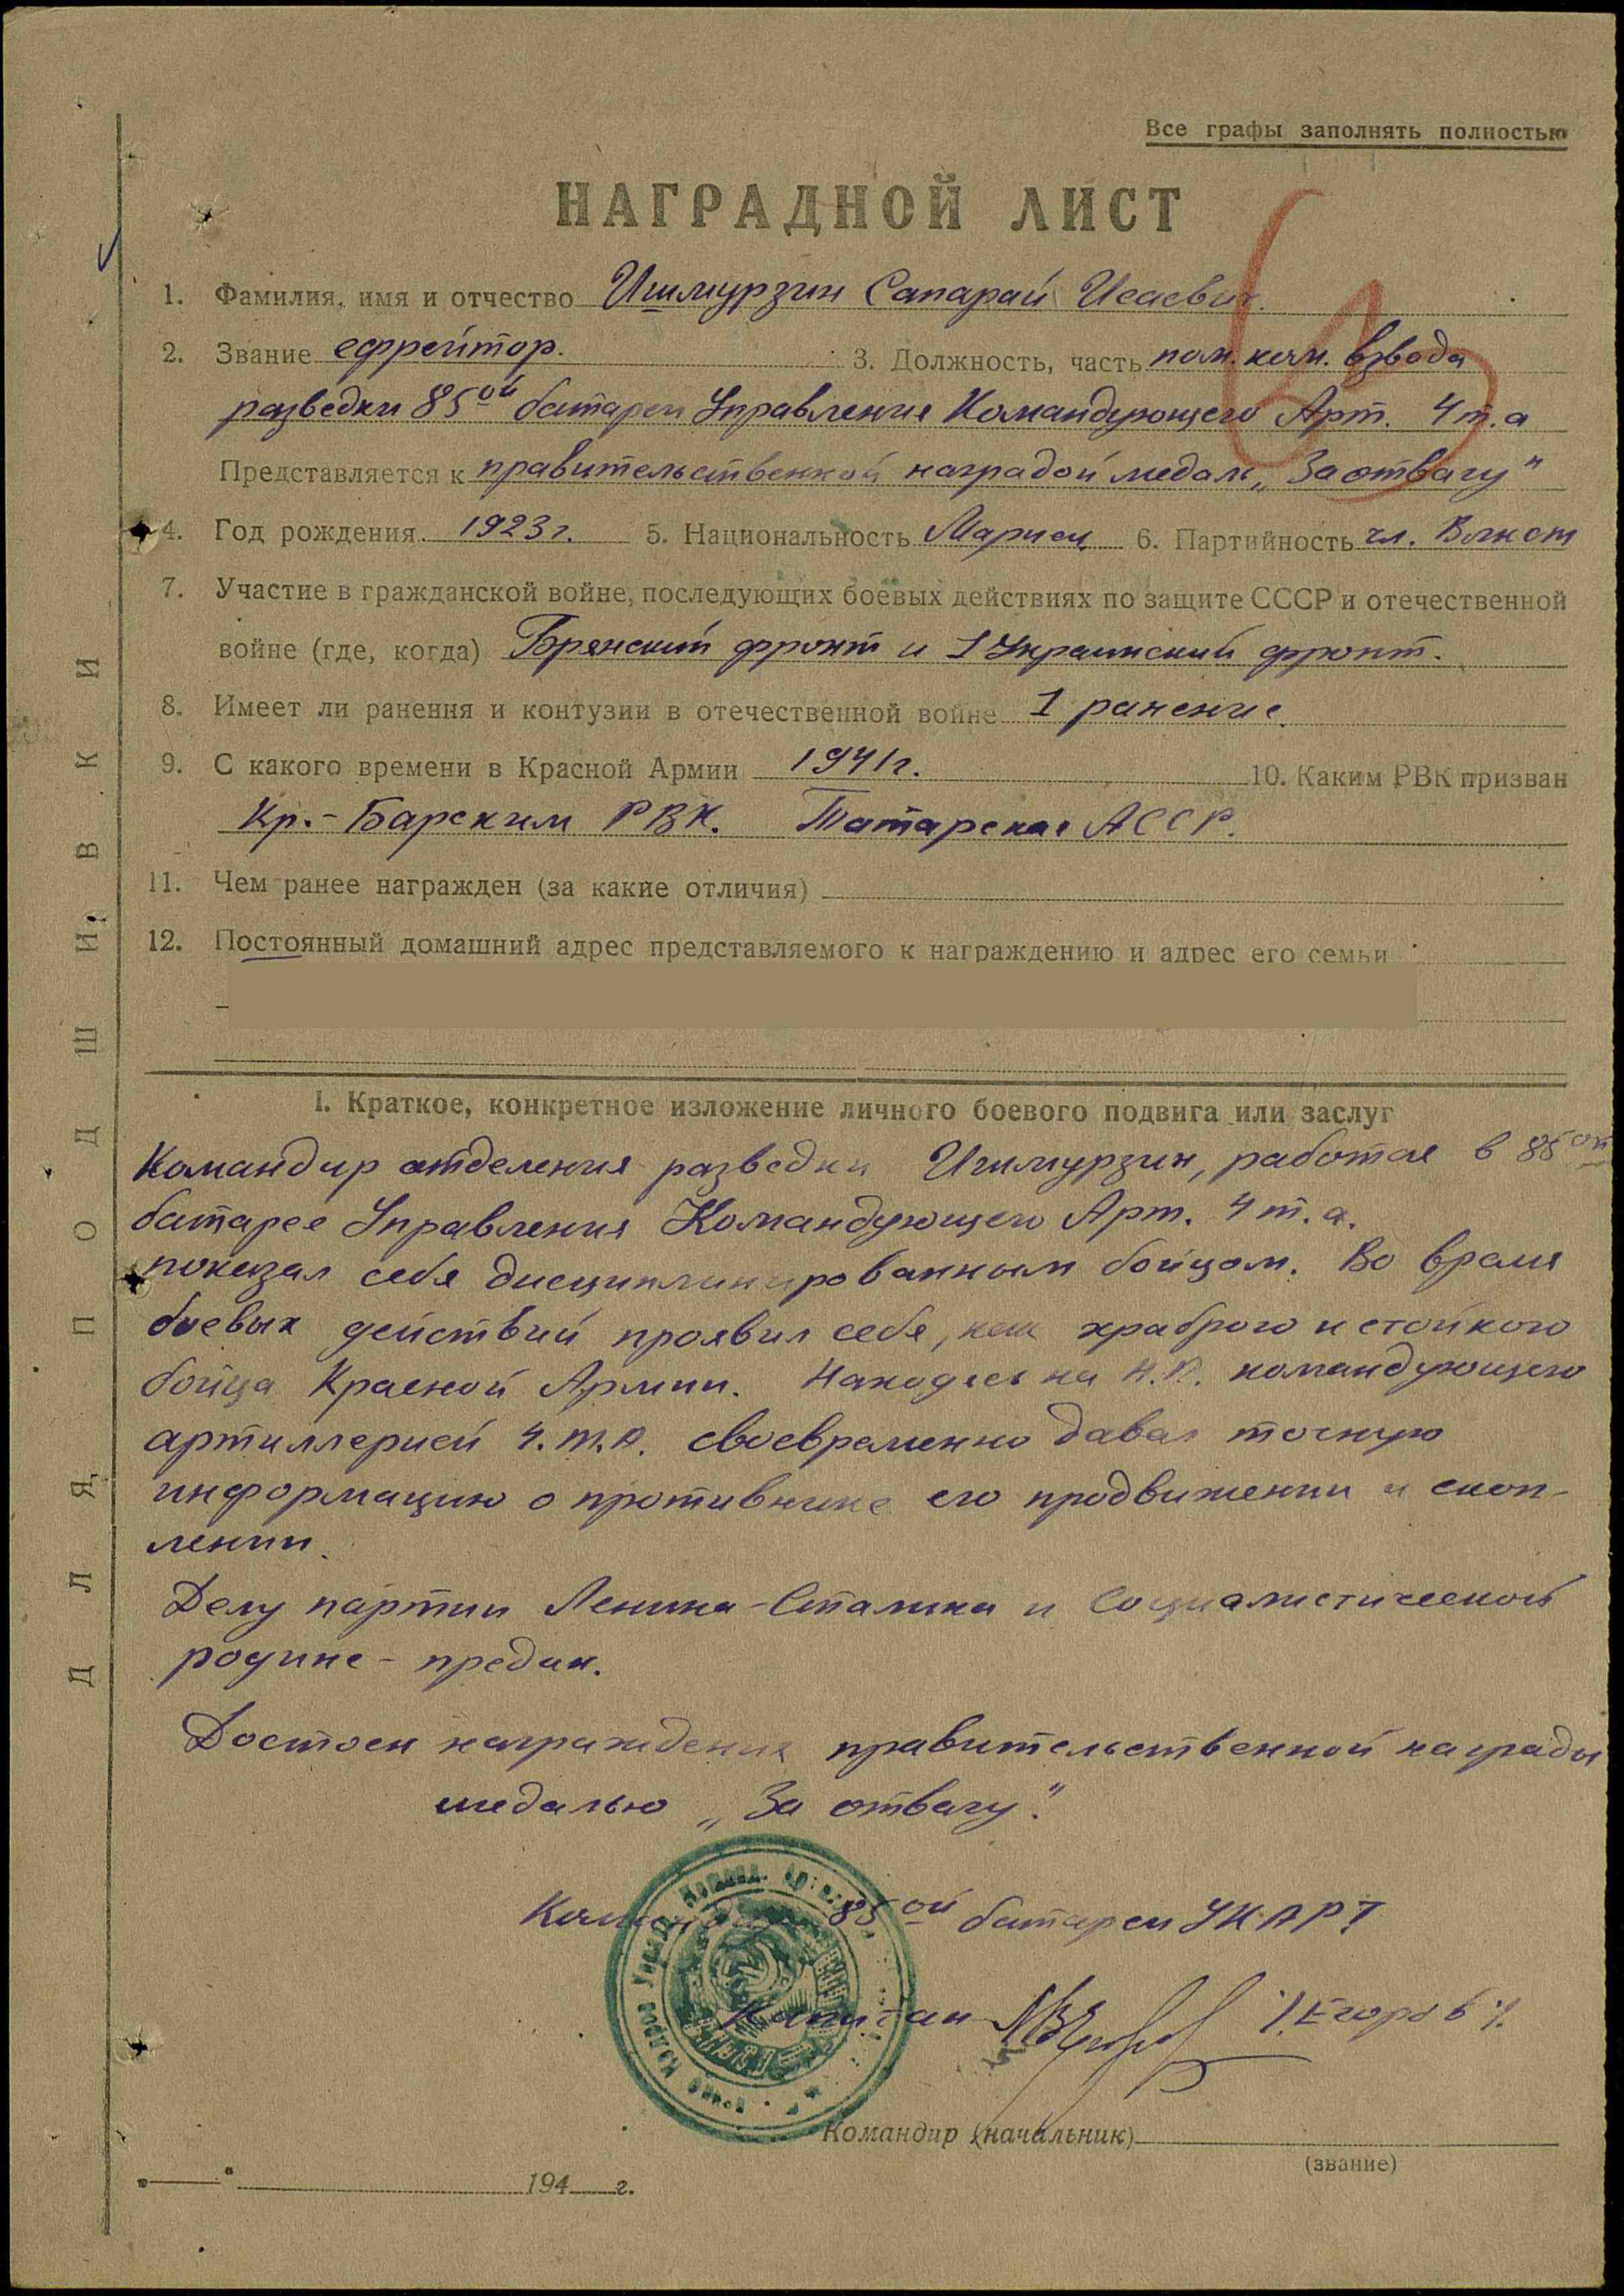 Все графы заполнять полностью
НАГРАДНОЙ ЛИСТ
1. Фамилия, имя и отчество Ишмурзин Сапарай Исаевич.
2. Звание ефрейтор. 3. Должность, часть пом. ком. взвода
разведки 85ой батареи Управления Командующего Арт. 4 т.а
Представляется к правительственной наградой медаль „За отвагу"
4. Год рождения 1923 г. 5. Национальность Мариец 6. Партийность чл. Влксм
7. Участие в гражданской войне, последующих боевых действиях по защите СССР и отечественной
войне (где, когда) Брянский фронт и 1 Украинский фронт.
8. Имеет ли ранения и контузии в отечественной войне 1 ранение.
9. С какого времени в Красной Армии 1941 г. 10. Каким РВК призван
Кр.-Барским РВК. Татарская АССР.
11. Чем ранее награжден (за какие отличия)
12. Постоянный домашний адрес представляемого к награждению и адрес его семьи
I. Краткое, конкретное изложение личного боевого подвига или заслуг
Командир отделения разведки Ишмурзин, работая в 85ой
батарее Управления Командующего Арт. 4 т.а.
показал себя дисциплинированным бойцом. Во время
боевых действий проявил себя, как храброго и стойкого
бойца Красной Армии. Находясь на Н.П. командующего
артиллерией 4.т.А. своевременно давал точную
информацию о противнике его продвижении и скоп-
лении.
Делу партии Ленина-Сталина и Социалистической
родине - предан.
Достоен награждения правительственной награды
медалью „За отвагу".
Командир 85ой батареи УКАРТ
Капитан /.Егоров./
Командир (начальник)
(звание)
"___" 194__ г.
ДЛЯ ПОДШИВКИ